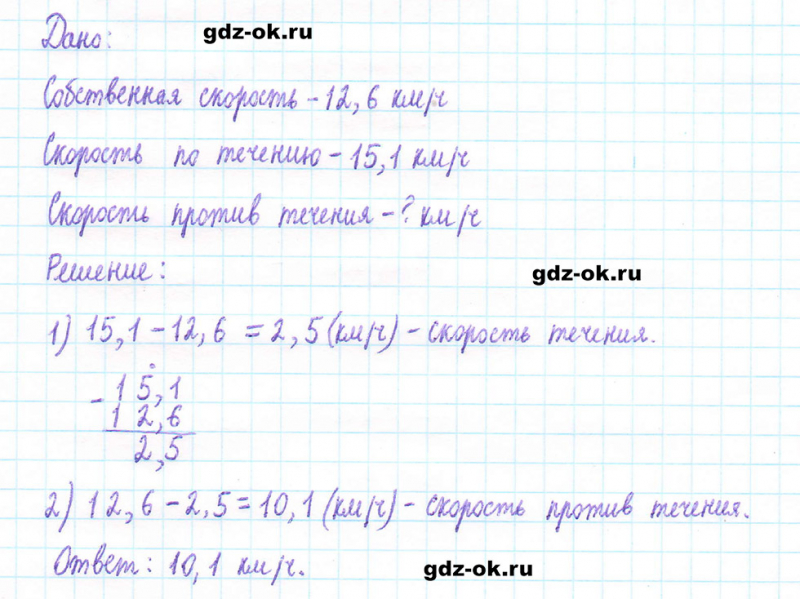 Дано:
gdz-ok.ru
Собственная скорость – 12,6 км/ч
Скорость по течению – 15,1 км/ч
Скорость против течения – ? км/ч
Решение:
gdz-ok.ru
1) 15,1 – 12,6 = 2,5 (км/ч) – скорость течения.
– 15,1
12,6
2,5
2) 12,6 – 2,5 = 10,1 (км/ч) – скорость против течения.
Ответ: 10,1 км/ч.
gdz-ok.ru